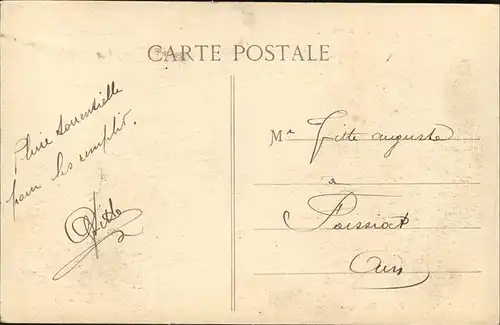 CARTE POSTALE
Pluie torrentielle
pour les remplir.
Fitte
Mr Fitte auguste
à
Poissiat
Ain